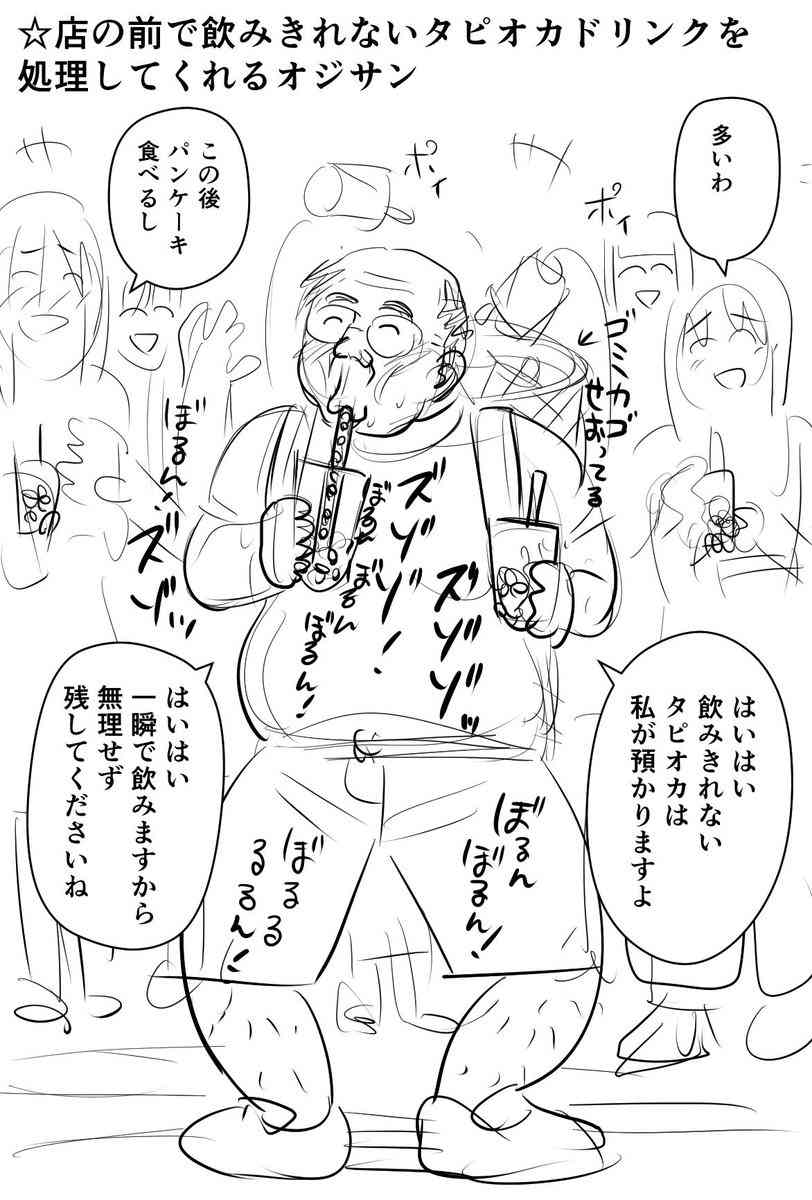 ☆店の前で飲みきれないタピオカドリンクを
処理してくれるオジサン
多いわ
この後
パンケーキ
食べるし
ポイ
ポイ
ゴミカゴ
せおってる
ぼるん!
ズゾッ
ズゾゾ!
ズゾゾッ
ぼるん
ぼるん
ぼるん!
はいはい
飲みきれない
タピオカは
私が預かりますよ
はいはい
一瞬で飲みますから
無理せず
残してくださいね
ぼるん
ぼるん!
ぼるる
るるん!